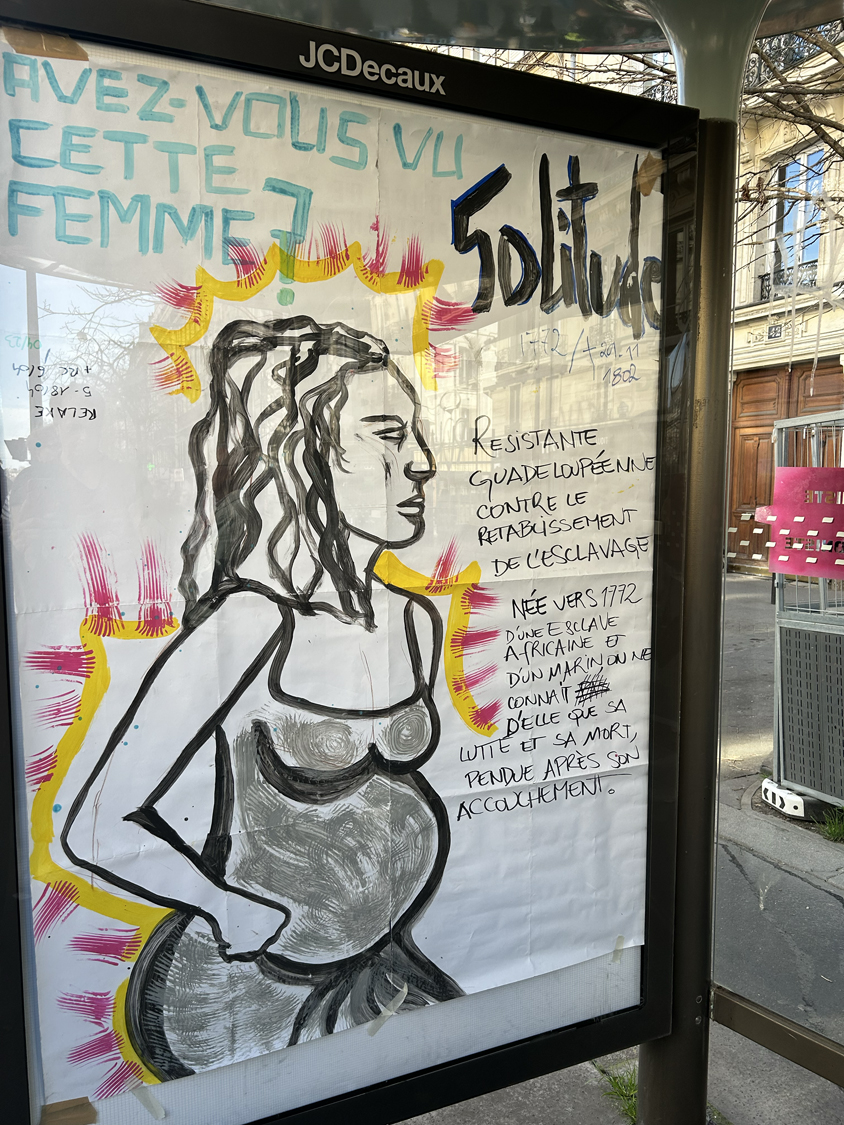 JCDecaux
AVEZ-VOUS VU
CETTE
FEMME?
Solitude
1772/+29.11
1802
RESISTANTE
GUADELOUPÉENNE
CONTRE LE
RETABLISSEMENT
DE L'ESCLAVAGE
NÉE VERS 1772
D'UNE ESCLAVE
AFRICAINE ET
D'UN MARIN, ON NE
CONNAÎT
D'ELLE QUE SA
LUTTE ET SA MORT,
PENDUE APRÈS SON
ACCOUCHEMENT.
RELAXE
5-18/04